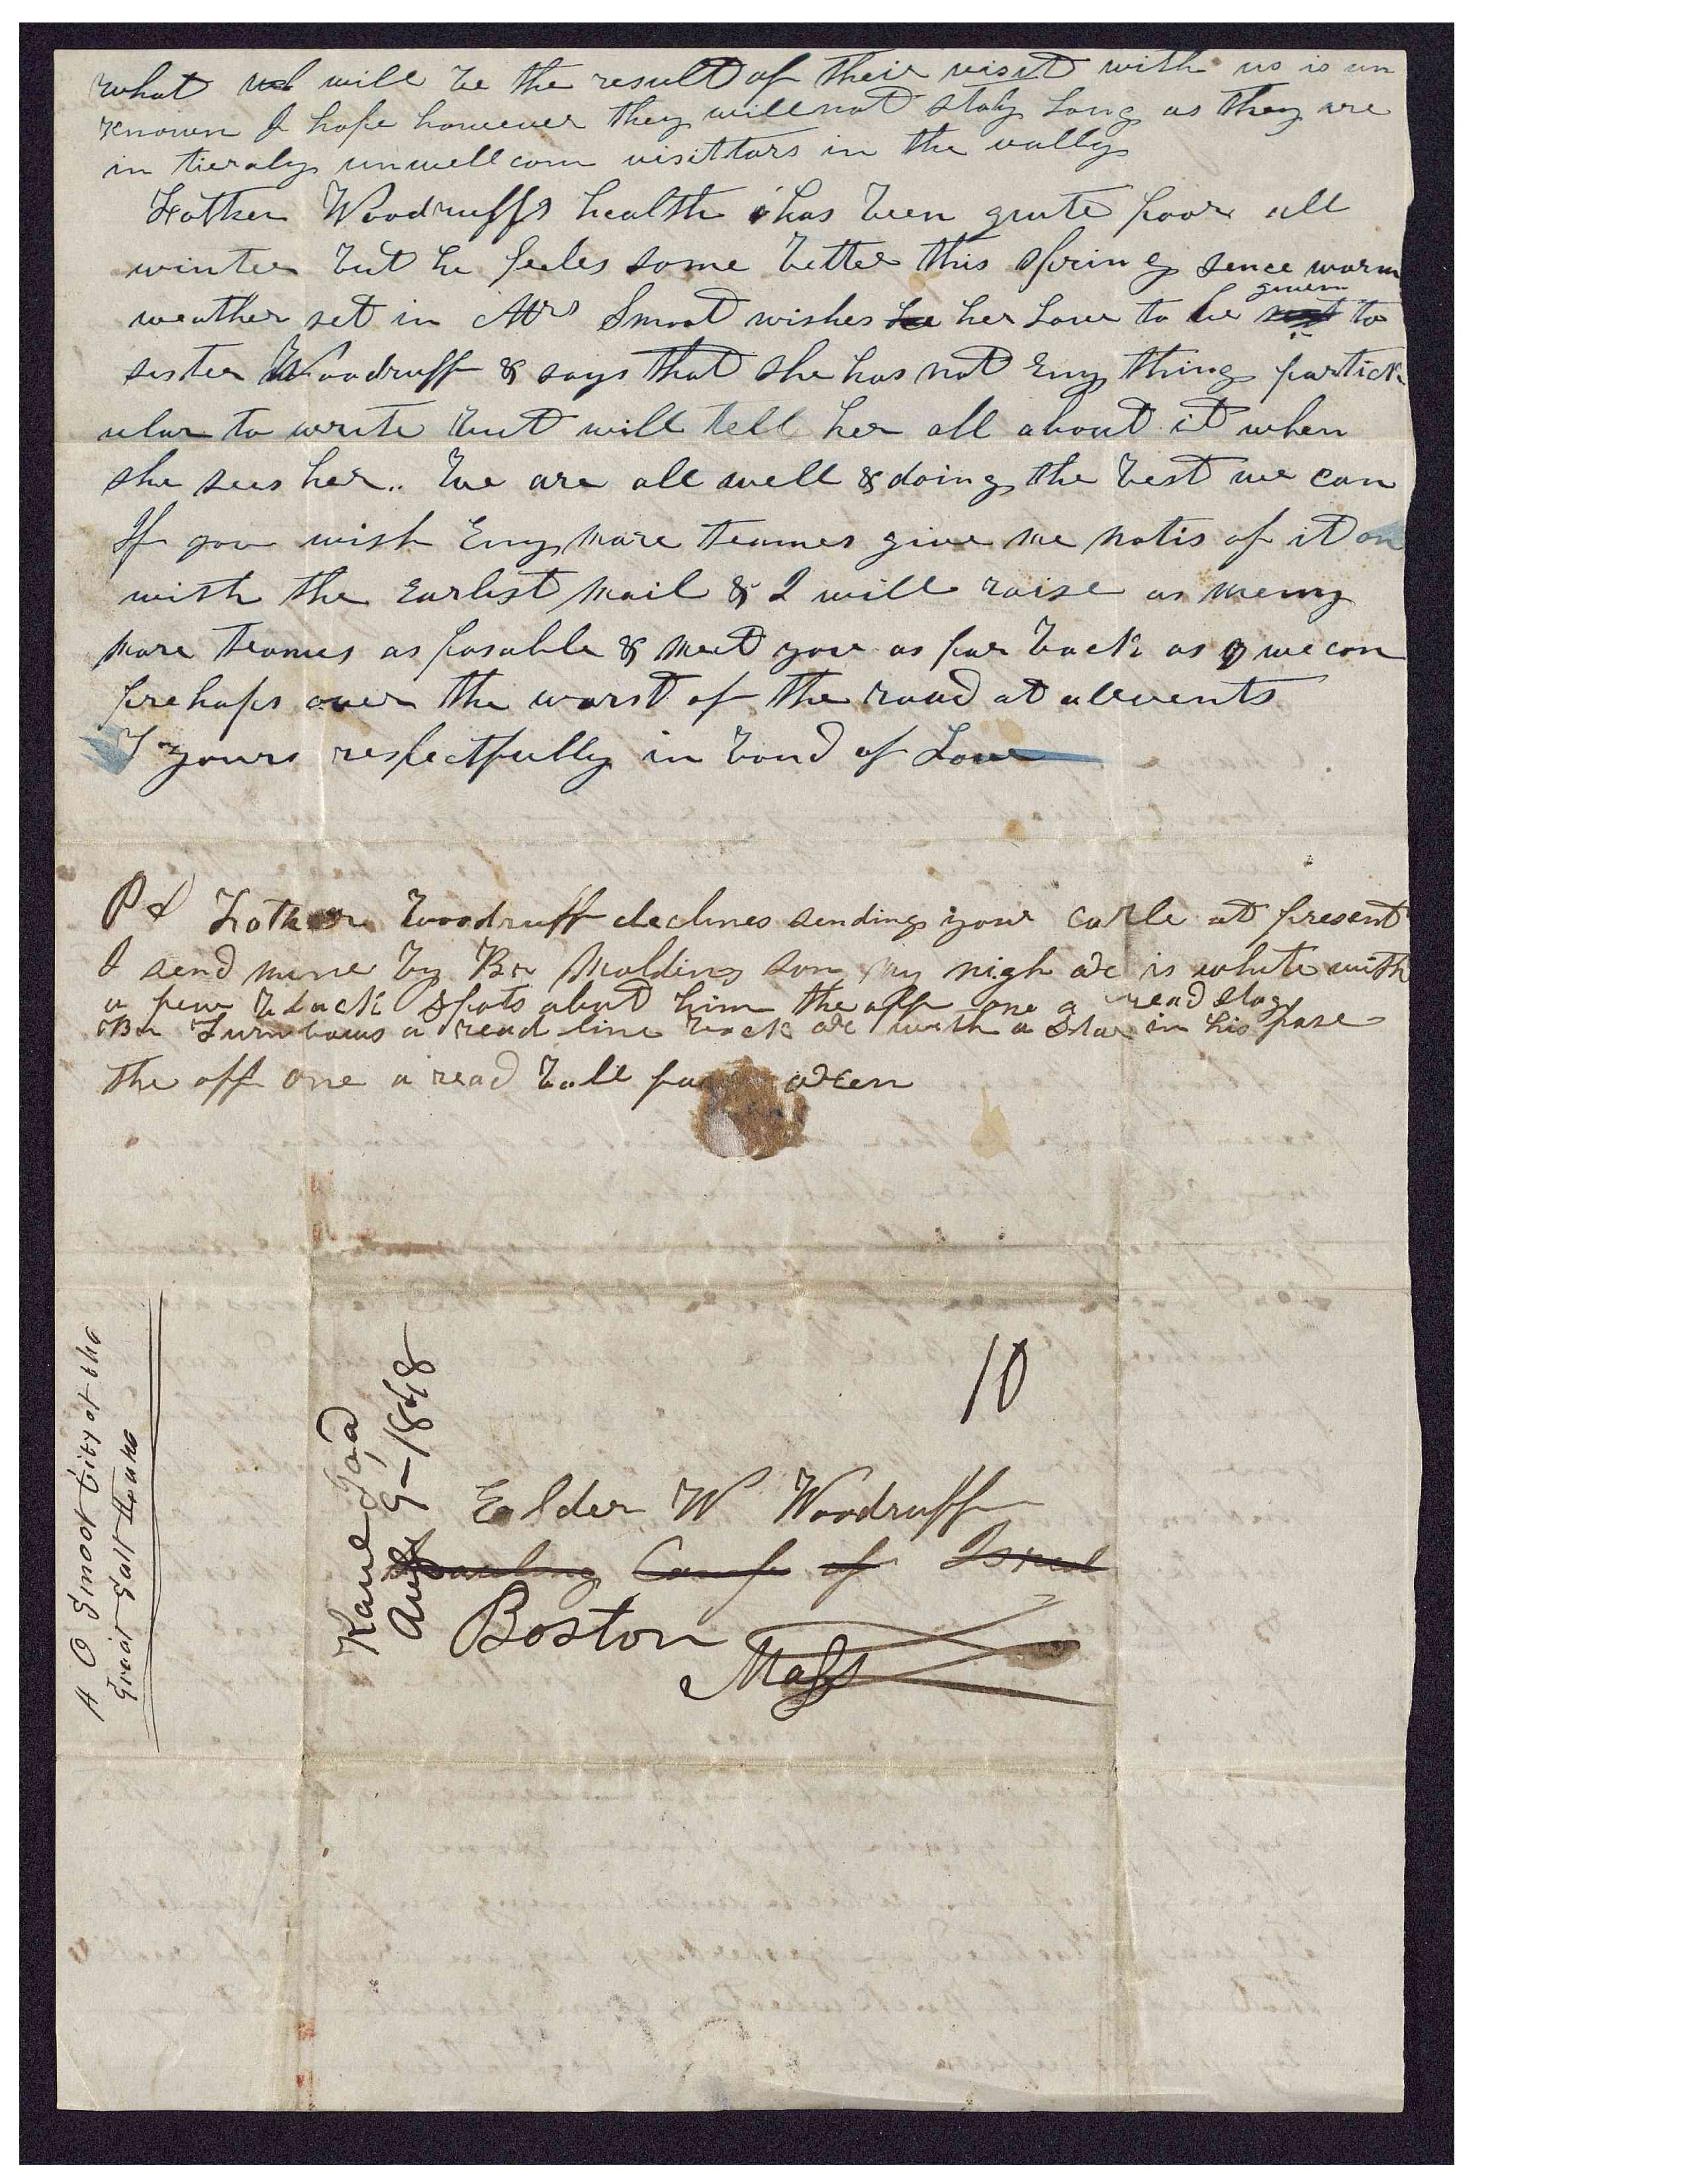 what will be the result of their visit with us is un
known I hope however they will not stay Long as they are
in tieraly unwellcom visittors in the vally
Father Woodruffs health has been quite poor all
winter but he feeles some better this spring sence warm
weather set in Mrs Smoot wishes her Love to be given to
sister Woodruff & says that she has not Eny thing partick
ular to write but will tell her all about it when
she sees her.. We are all well & doing the best we can
If you wish Eny more teames give me notis of it on
with the Earlest mail & I will raise as meny
more teames as posable & meet you as far back as we can
prehaps over the worst of the road at alevents
I yours respectfully in bond of Love
PS Father Woodruff declines sending your catle at present
I send mine by Br Molding son my nigh ox is white with
a few black Spots about him the off one a read stag
Br Turnbows a read line back ox with a Star in his fase
the off one a read bale oxen
A O Smoot City of the
Great Salt
Kane Ioa
Aug 9-1848
10
Eelder W Woodruff
Camp of Isrel
Boston
Mass